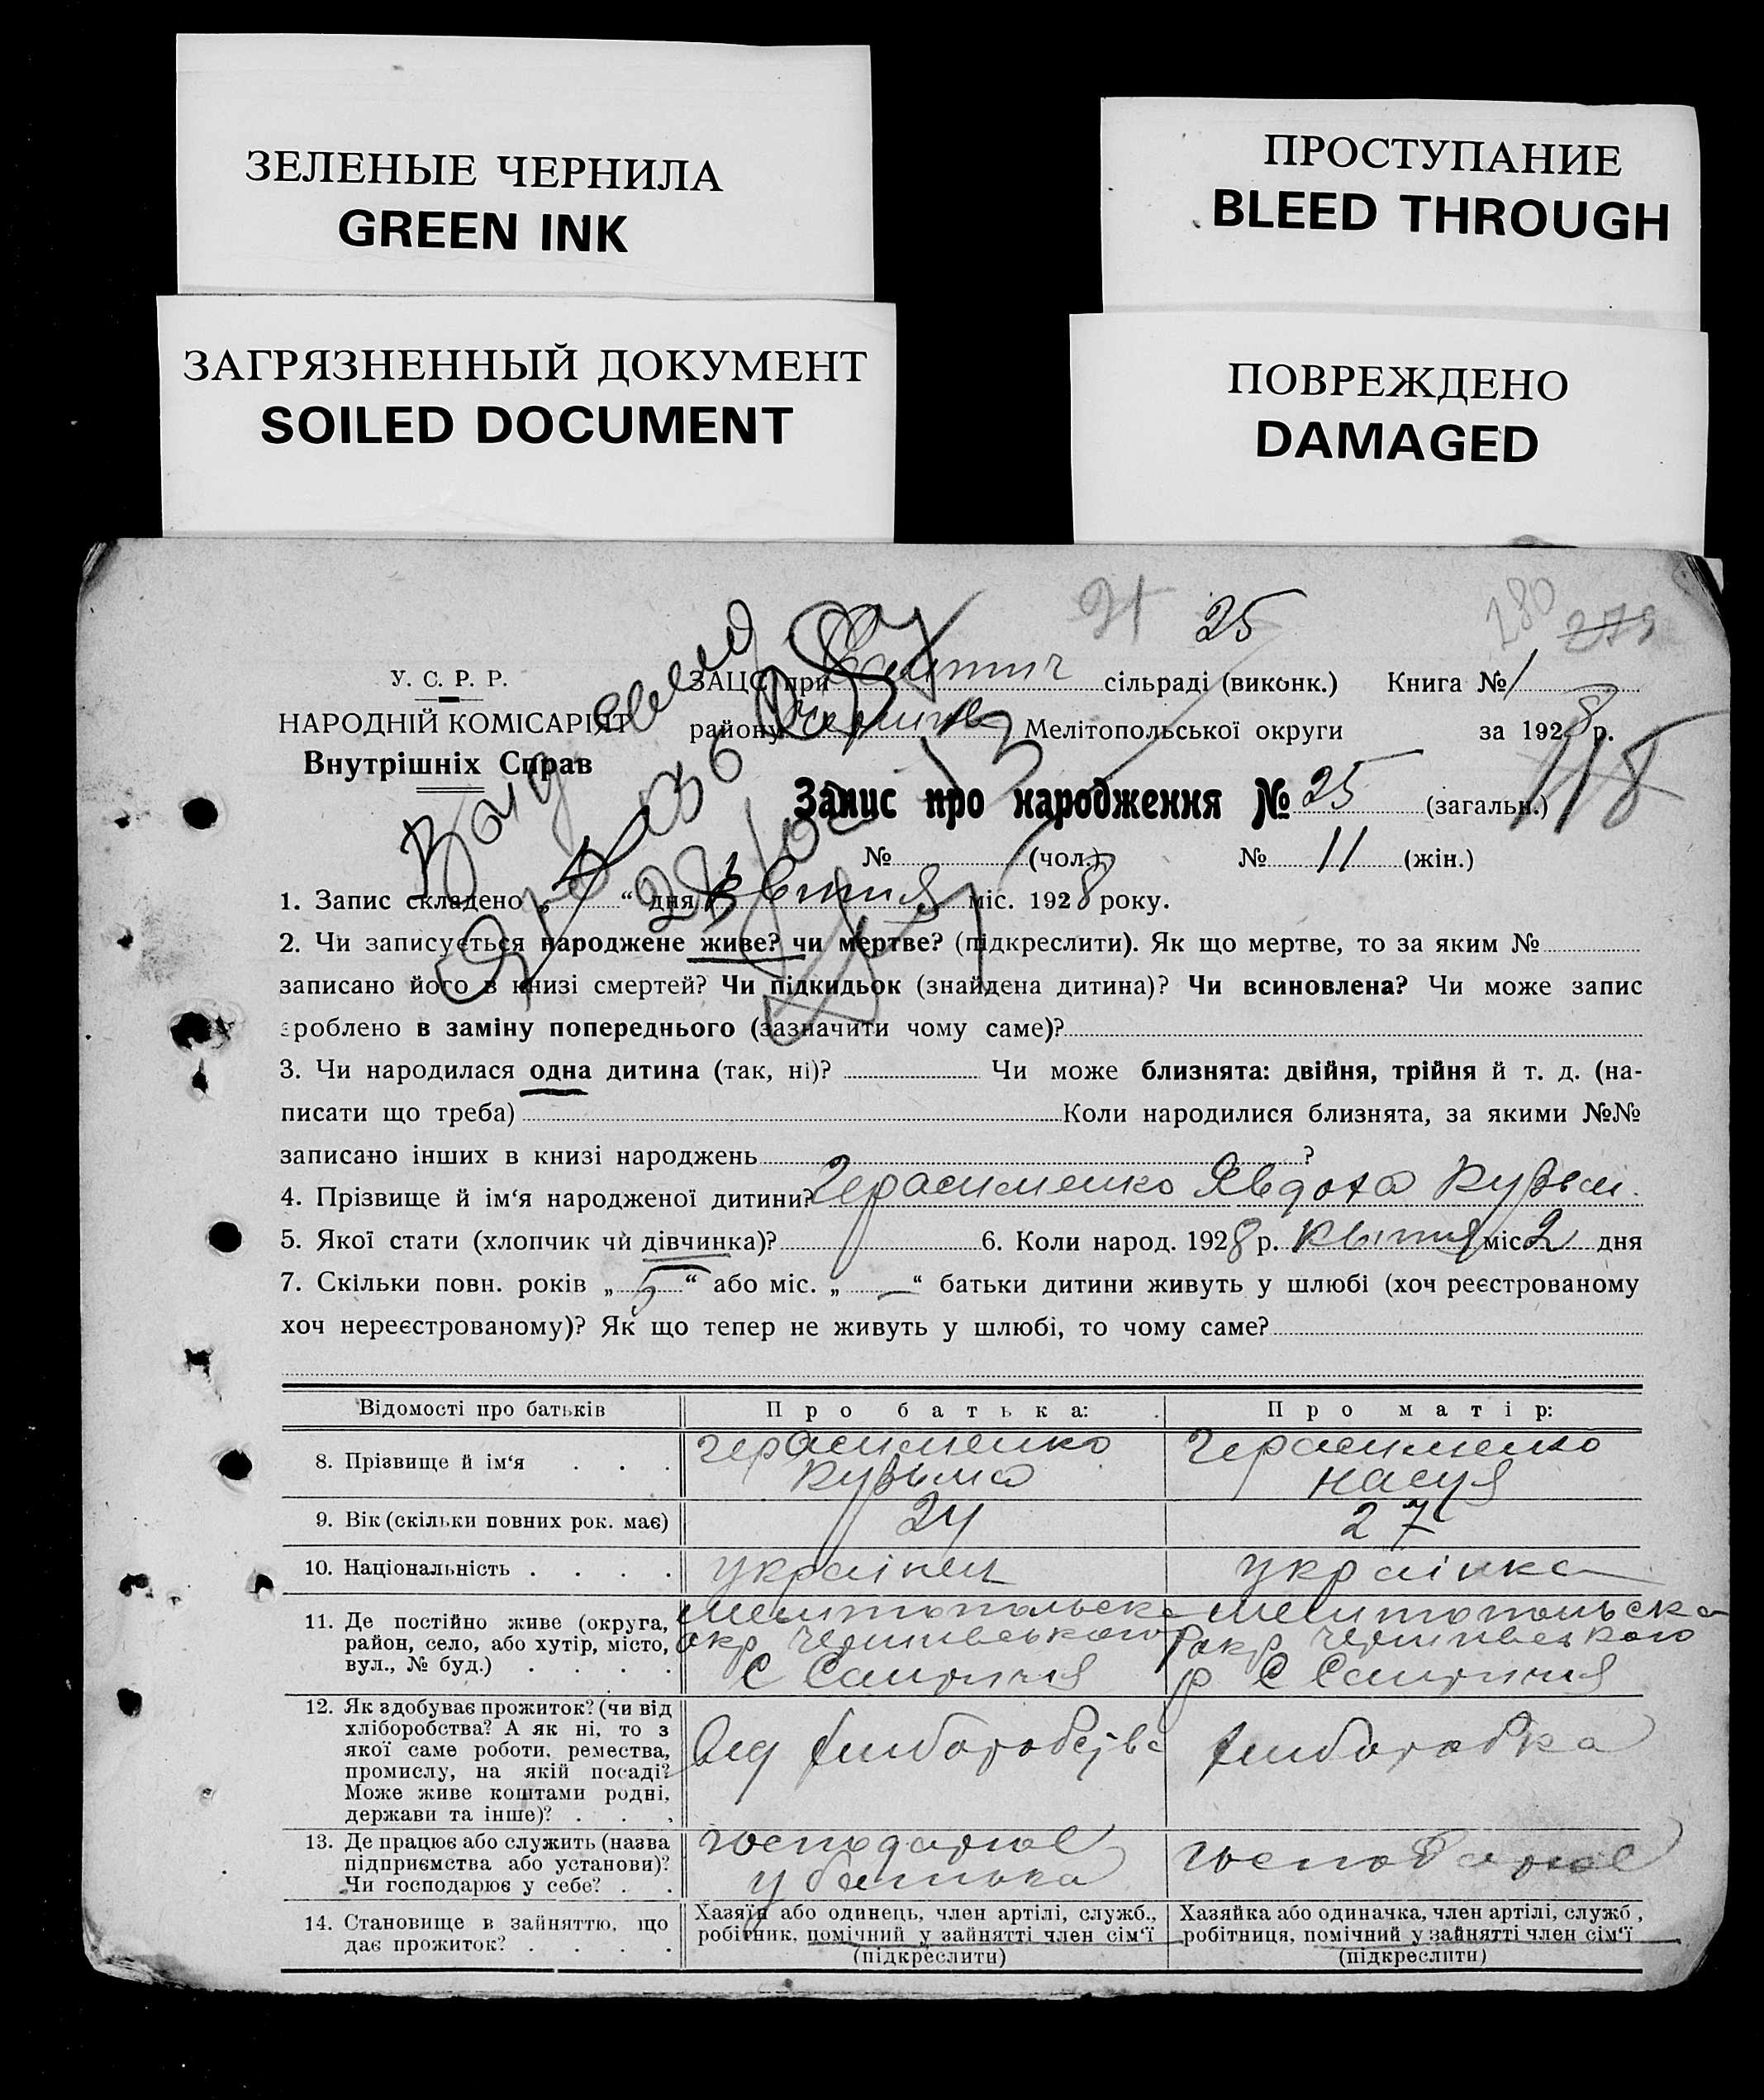 ЗЕЛЕНЫЕ ЧЕРНИЛА
GREEN INK
ПРОСТУПАНИЕ
BLEED THROUGH
ЗАГРЯЗНЕННЫЙ ДОКУМЕНТ
SOILED DOCUMENT
ПОВРЕЖДЕНО
DAMAGED
25
280 279
У. С. Р. Р.
НАРОДНІЙ КОМІСАРІЯТ
Внутрішніх Справ
ЗАЦС при сільраді (виконк.) Книга № 1
району Мелітопольської округи за 1928 р.
118
Запис про народження № 25 (загальн.)
№ (чол.) № 11 (жін.)
1. Запис складено „ “ дня квітня міс. 1928 року.
2. Чи записується народжене живе? чи мертве? (підкреслити). Як що мертве, то за яким №
записано його в книзі смертей? Чи підкидьок (знайдена дитина)? Чи всиновлена? Чи може запис
зроблено в заміну попереднього (зазначити чому саме)?
3. Чи народилася одна дитина (так, ні)? Чи може близнята: двійня, трійня й т. д. (на-
писати що треба) Коли народилися близнята, за якими №№
записано інших в книзі народжень ?
4. Прізвище й ім‘я народженої дитини? Герасименко Явдоха Кузьм.
5. Якої стати (хлопчик чи дівчинка)? 6. Коли народ. 1928 р. квітня міс 2 дня
7. Скільки повн. років „ 5 “ або міс. „ — “ батьки дитини живуть у шлюбі (хоч реєстрованому
хоч нереєстрованому)? Як що тепер не живуть у шлюбі, то чому саме?
Відомості про батьків
Про батька:
Про матір:
8. Прізвище й ім‘я . . .
Герасименко
Кузьма
Герасименко
9. Вік (скільки повних рок. має)
24
27
10. Національність . . . .
українец
українка
11. Де постійно живе (округа,
район, село, або хутір, місто,
вул., № буд.) . . . .
Мелитопольска
окр Чернивського
С Салтичия
Мелитопольска
окр Чернивського
р С Салтичия
12. Як здобуває прожиток? (чи від
хліборобства? А як ні, то з
якої саме роботи, ремества,
промислу, на якій посаді?
Може живе коштами родні,
держави та інше)? . . .
Від хліборобства
хлиборобка
13. Де працює або служить (назва
підприємства або установи)?
Чи господарює у себе? . .
господарює
у батька
господарює
14. Становище в зайняттю, що
дає прожиток? . . . .
Хазяїн або одинець, член артілі, служб.,
робітник, помічний у зайнятті член сім‘ї
(підкреслити)
Хазяйка або одиначка, член артілі, служб.,
робітниця, помічний у зайнятті член сім‘ї
(підкреслити)